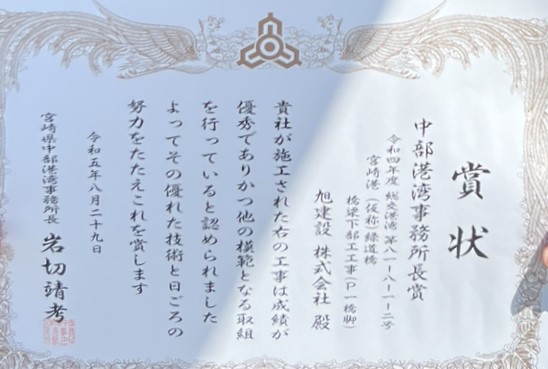 賞状
中部港湾事務所長賞
令和四年度 総交港湾 第八一-八-一-二号
宮崎港（仮称）緑道橋
橋梁下部工工事（P一橋脚）
旭建設 株式会社 殿
貴社が施工された右の工事は成績が
優秀でありかつ他の模範となる取組
を行っていると認められました
よってその優れた技術と日ごろの
努力をたたえこれを賞します
令和五年八月二十九日
宮崎県中部港湾事務所長 岩切靖考